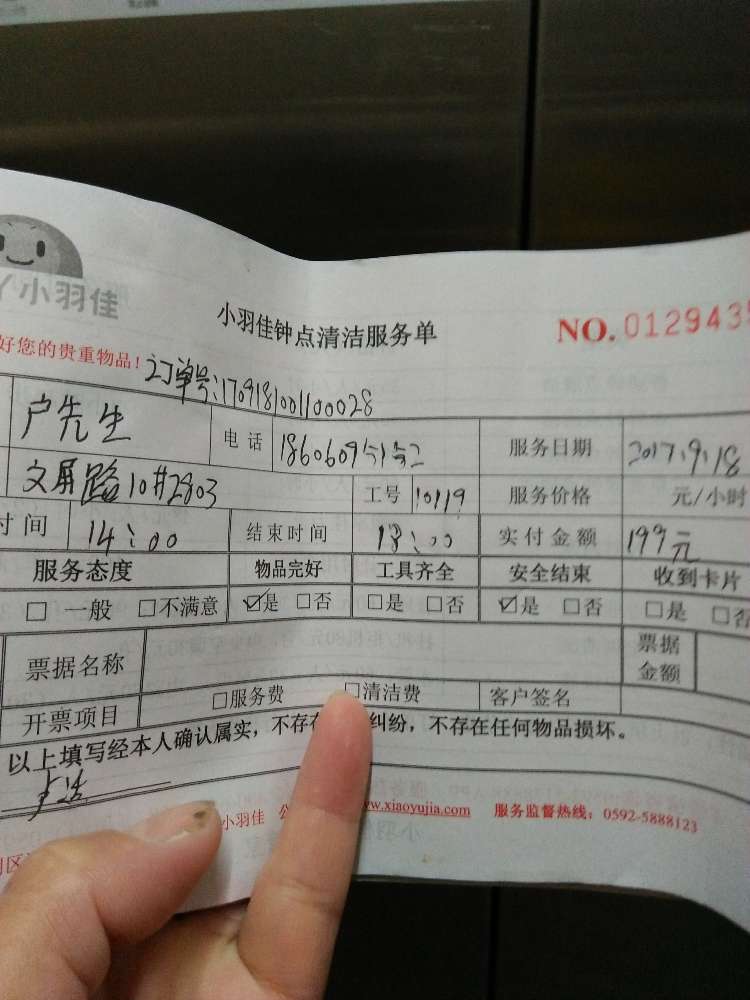 丫小羽佳
小羽佳钟点清洁服务单 NO.0129435
好您的贵重物品! 订单号:170918001100028
户先生 电话 服务日期 2017.9.18
文屏路10#2803 工号 10119 服务价格 元/小时
时间 14:00 结束时间 18:00 实付金额 199元
服务态度 物品完好 工具齐全 安全结束 收到卡片
□一般 □不满意 ☑是 □否 □是 □否 ☑是 □否 □是 □否
票据名称 票据金额
开票项目 □服务费 □清洁费 客户签名
以上填写经本人确认属实,不存在 纠纷,不存在任何物品损坏。
小羽佳 www.xiaoyujia.com 服务监督热线:0592-5888123